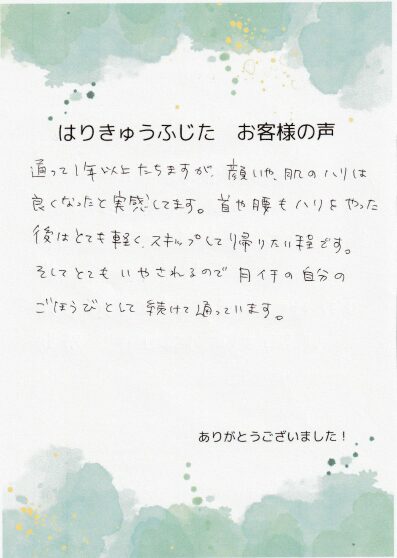 はりきゅうふじた　お客様の声
通って1年以上たちますが、顔いや、肌のハリは
良くなったと実感してます。首や腰もハリをやった
後はとても軽く、スキップして帰りたい程です。
そしてとてもいやされるので月イチの自分の
ごほうびとして続けて通っています。
ありがとうございました！